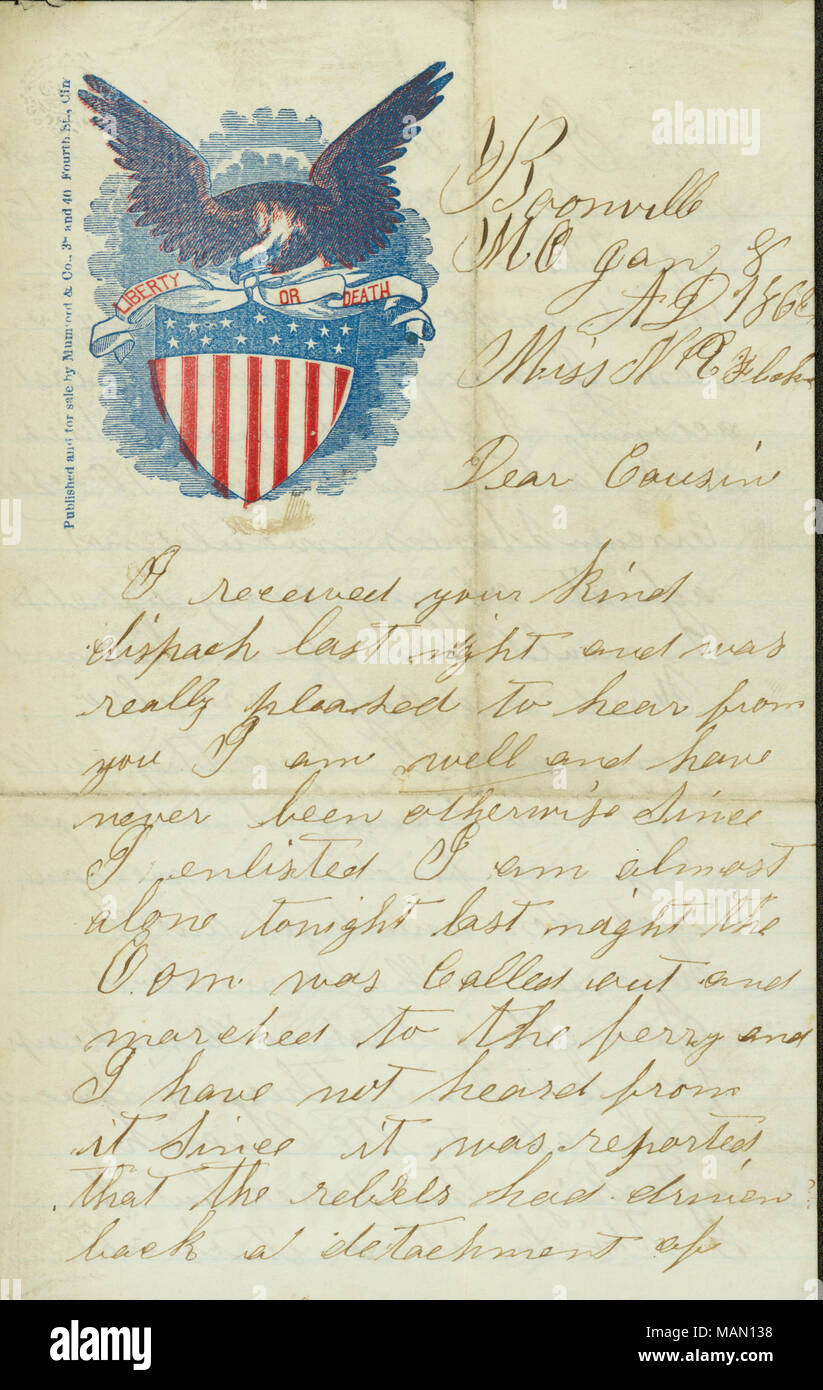 Published and for sale by Mumford & Co., 38 and 40 Fourth St., Cin
LIBERTY OR DEATH
Boonville
MO Jan 8
AD 186
Miss N E
Dear Cousin
I received your kind
dispach last night and was
really pleased to hear from
you I am well and have
never been otherwise since
I enlisted I am almost
alone tonight last night the
Com was Called out and
marched to the ferry and
I have not heard from
it since it was reported
that the rebels had driven
back a detachment of
alamy
alamy
alamy
alamy
Image ID: MAN138
www.alamy.com